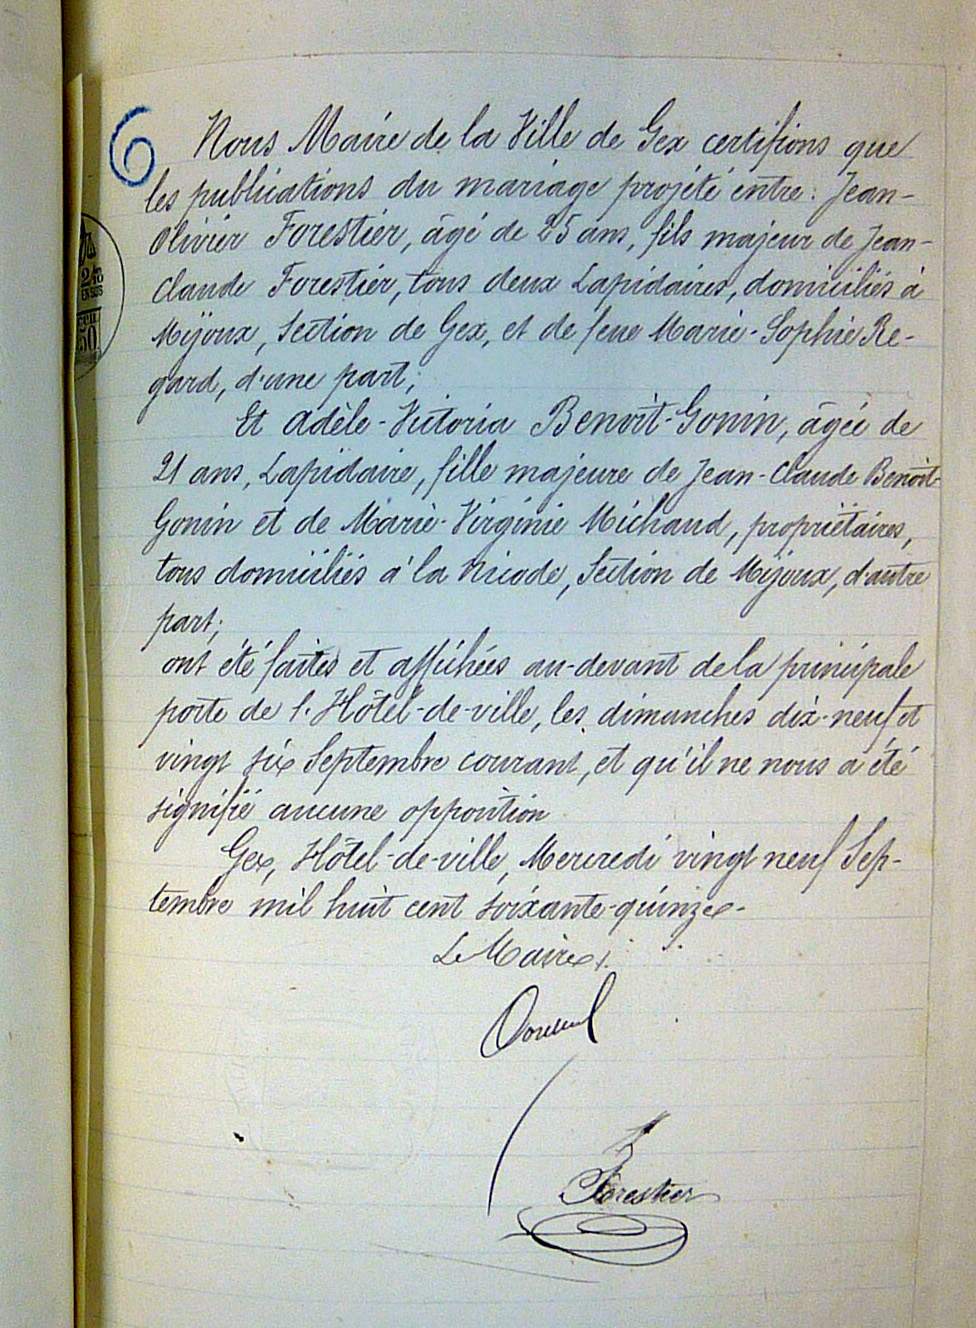 6
Nous Maire de la Ville de Gex certifions que
les publications du mariage projété entre : Jean-
Olivier Forestier, âgé de 25 ans, fils majeur de Jean-
Claude Forestier, tous deux Lapidaires, domiciliés à
Mijoux, Section de Gex, et de feue Marie-Sophie Re-
gard, d'une part;
Et Adèle-Victoria Benoît-Gonin, âgée de
21 ans, Lapidaire, fille majeure de Jean-Claude Benoît-
Gonin et de Marie-Virginie Michaud, propriétaires,
tous domiciliés à la Section de Mijoux, d'autre
part;
ont été faites et affichées au-devant de la principale
porte de l'Hôtel-de-ville, les dimanches dix-neuf et
vingt six Septembre courant, et qu'il ne nous a été
signifié aucune opposition
Gex, Hôtel-de-ville, Mercredi vingt neuf Sep-
tembre mil huit cent soixante-quinze.
Le Maire.
Forestier